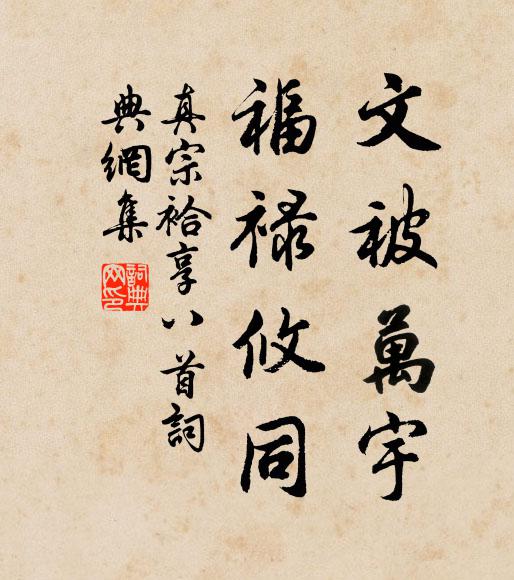 文被萬宇
福祿攸同
真宗祫享八首詞
典網集
詞典網印